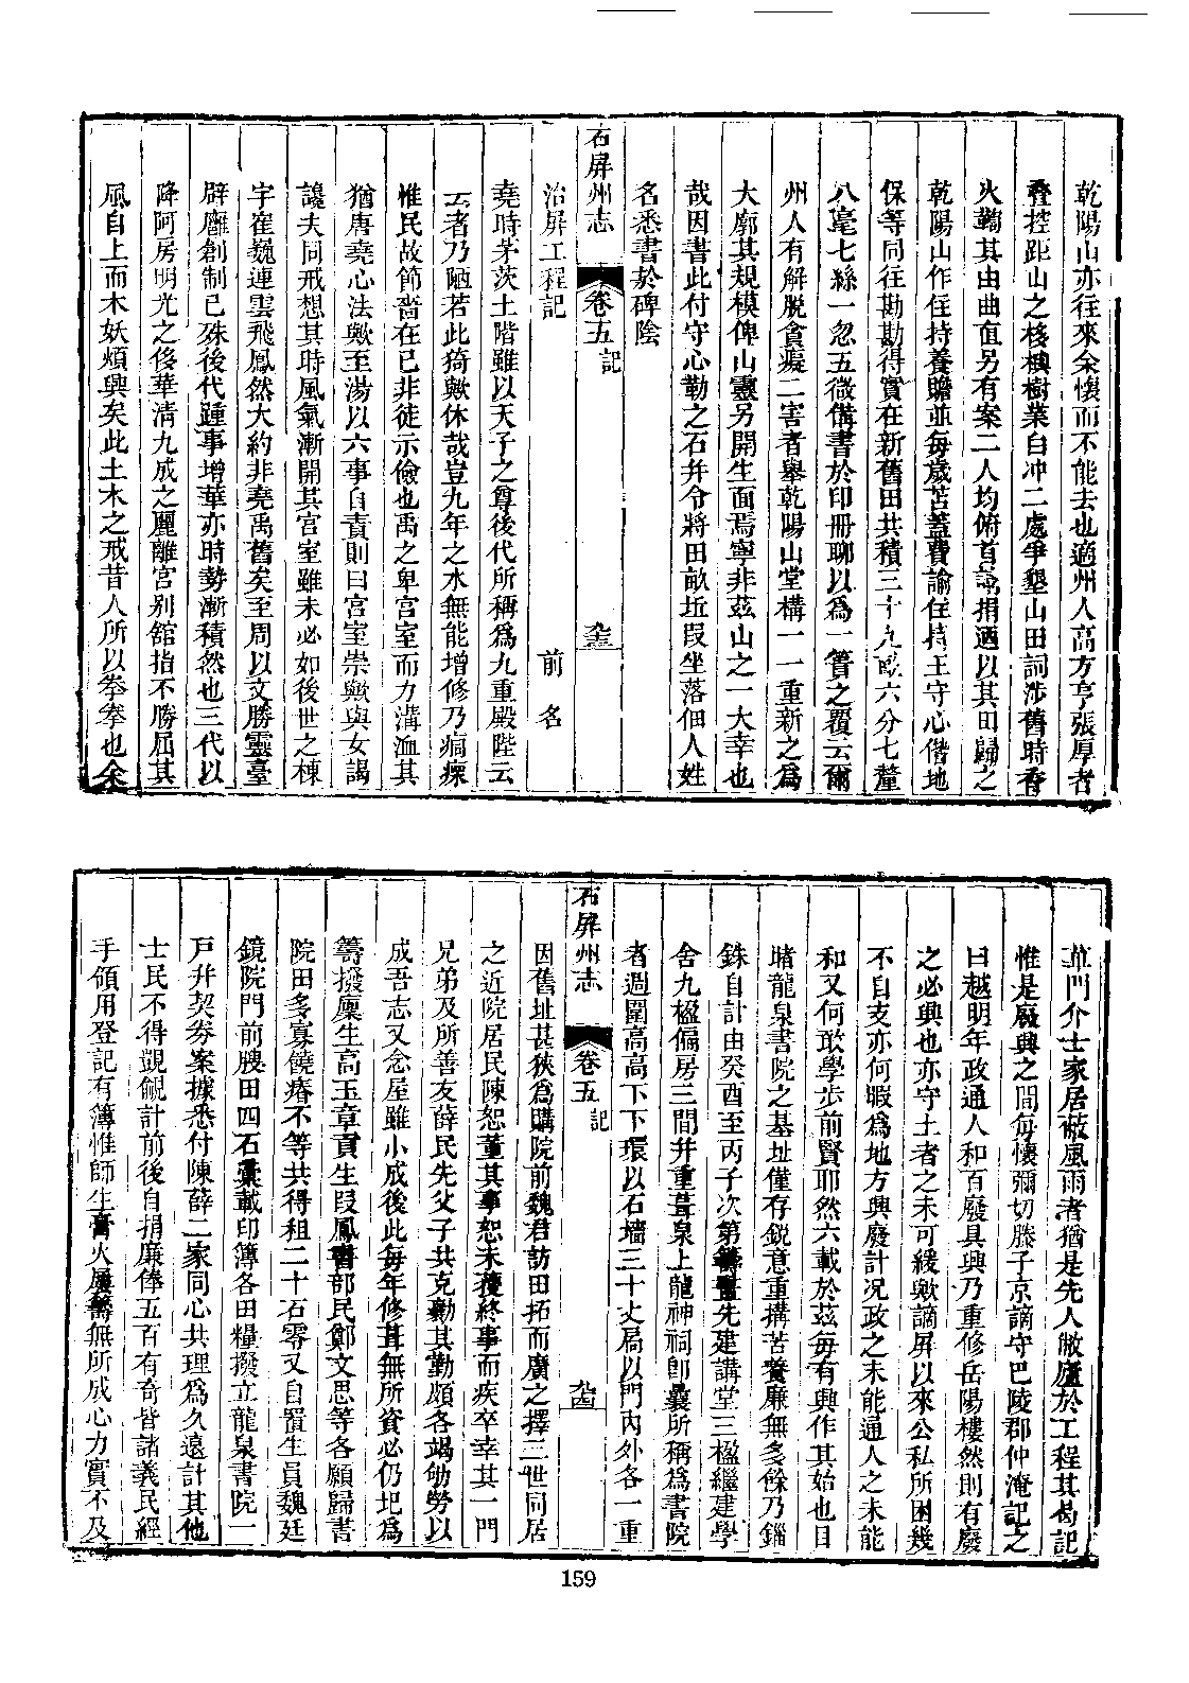 乾陽山亦往來余懷而不能去也適州人高方亨張厚者
疊控距山之核桃樹業白冲二處爭墾山田詞涉舊時香
火鞫其由曲直另有案二人均俯首論捐迺以其田歸之
乾陽山作住持養贍並每歲苫蓋費諭住持王守心偕地
保等同往勘勘得實在新舊田共積三十九畝六分七釐
八毫七絲一忽五微備書於印冊聊以爲一簣之覆云爾
州人有解脫貪癡二害者舉乾陽山堂構一一重新之爲
大廓其規模俾山靈另開生面焉寧非茲山之一大幸也
哉因書此付守心勒之石幷令將田畝坵段坐落佃人姓
名悉書於碑陰
石屏州志 卷五 記 卆三
治屏工程記 前名
堯時茅茨土階雖以天子之尊後代所稱爲九重殿陛云
云者乃陋若此猗歟休哉豈九年之水無能增修乃痌瘝
惟民故節嗇在已非徒示儉也禹之卑宮室而力溝洫其
猶唐堯心法歟至湯以六事自責則曰宮室崇歟與女謁
讒夫同戒想其時風氣漸開其宮室雖未必如後世之棟
宇崔巍連雲飛鳳然大約非堯禹舊矣至周以文勝靈臺
辟廱創制已殊後代踵事增華亦時勢漸積然也三代以
降阿房明光之侈華清九成之麗離宮別館指不勝屈其
風自上而木妖煩興矣此土木之戒昔人所以拳拳也余
蓽門介士家居蔽風雨者猶是先人敝廬於工程其曷記
惟是廢興之間每懷彌切滕子京謫守巴陵郡仲淹記之
曰越明年政通人和百廢具興乃重修岳陽樓然則有廢
之必興也亦守土者之未可緩歟謫屏以來公私所困幾
不自支亦何暇爲地方興廢計况政之未能通人之未能
和又何敢學步前賢耶然六載於茲每有興作其始也目
睹龍泉書院之基址僅存銳意重搆苦養廉無多餘乃錙
銖自計由癸酉至丙子次第籌畫先建講堂三楹繼建學
舍九楹偏房三間幷重葺泉上龍神祠卽曩所稱爲書院
者週圍高高下下環以石墻三十丈局以門內外各一重
石屏州志 卷五 記 卆四
因舊址甚狹爲購院前魏君訪田拓而廣之擇三世同居
之近院居民陳恕董其事恕未獲終事而疾卒幸其一門
兄弟及所善友薛民先父子共克勷其勤頗各竭劬勞以
成吾志又念屋雖小成後此每年修葺無所資必仍圮爲
籌撥廩生高玉章貢生段鳳書部民鄭文思等各願歸書
院田多寡饒瘠不等共得租二十石零又自置生員魏廷
鏡院門前腴田四石彙載印簿各田糧撥立龍泉書院一
戸幷契券案據悉付陳薛二家同心共理爲久遠計其他
士民不得覬覦計前後自捐廉俸五百有奇皆諸義民經
手領用登記有簿惟師生膏火屢籌無所成心力實不及
159